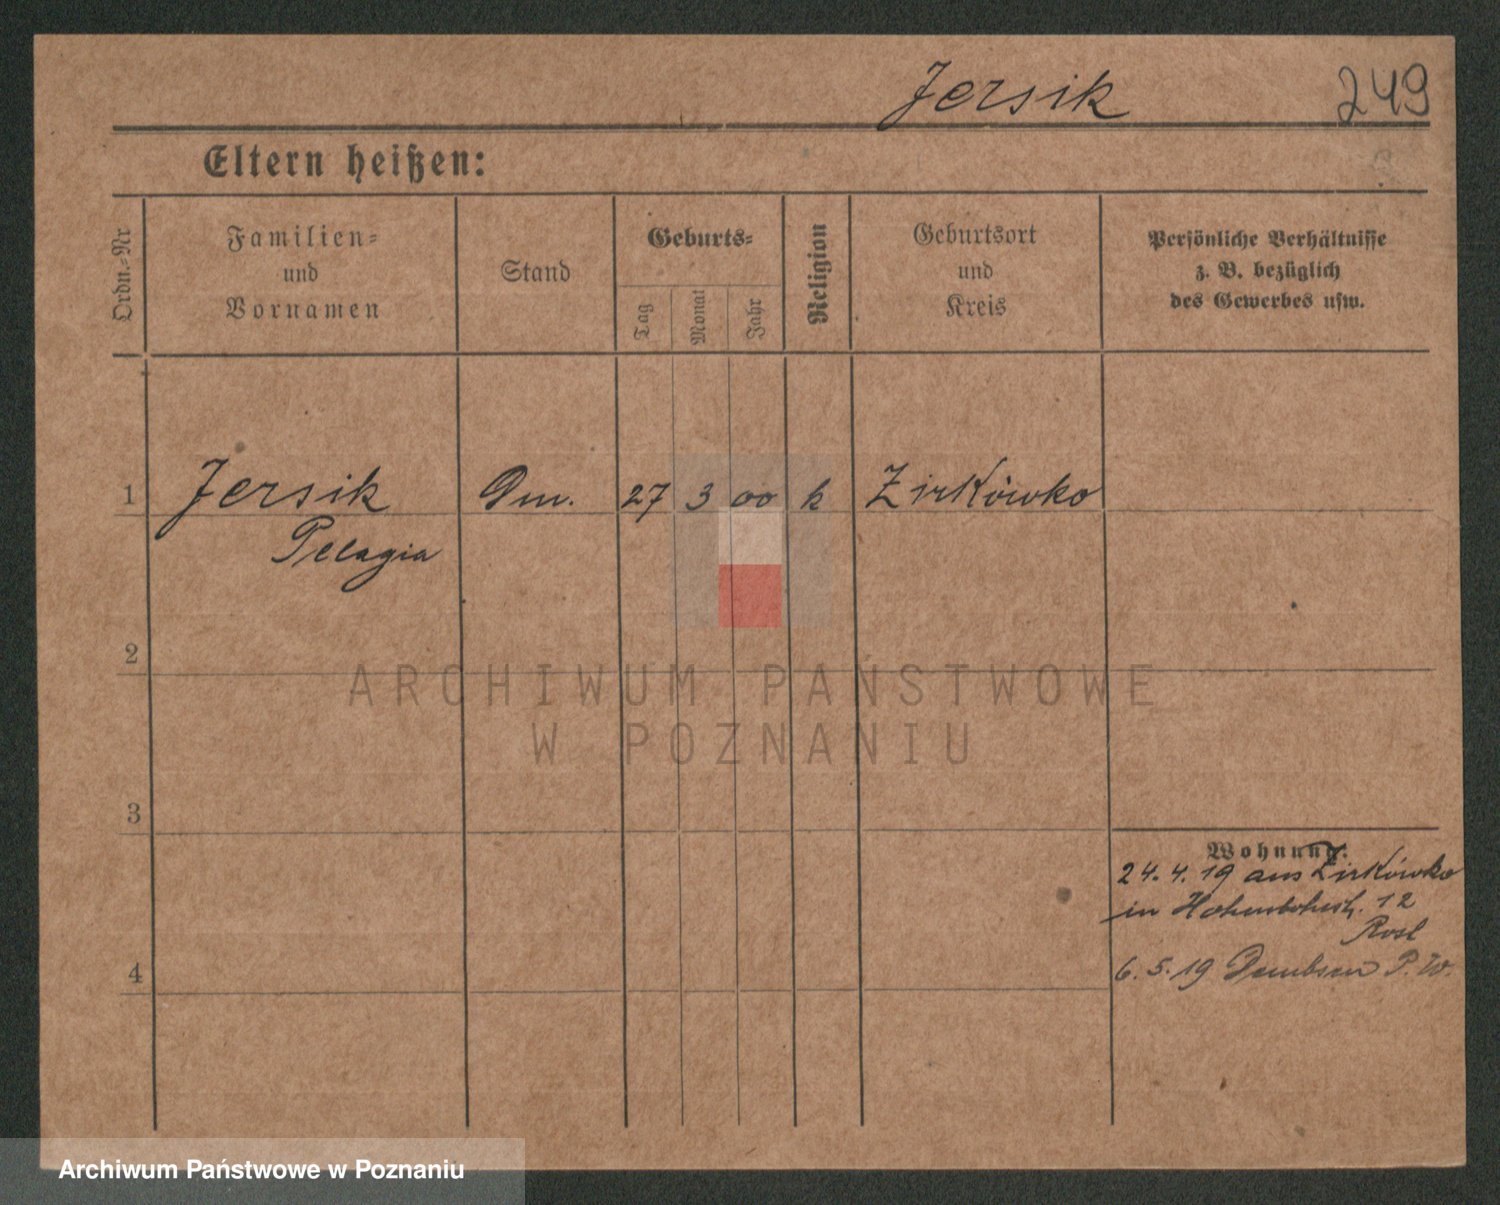 Jersik 249
Eltern heißen:
Ordn.-Nr
Familien-
und
Vornamen
Stand
Geburts-
Tag
Monat
Jahr
Religion
Geburtsort
und
Kreis
Persönliche Verhältnisse
z. B. bezüglich
des Gewerbes usw.
1 Jersik Dm. 27 3 00 k Zirkówko
Pelagia
2
3
4
Wohnung:
24.4.19 aus Zirkówko
in 12
6.5.19 Dembsen P.W.
ARCHIWUM PAŃSTWOWE
W POZNANIU
Archiwum Państwowe w Poznaniu